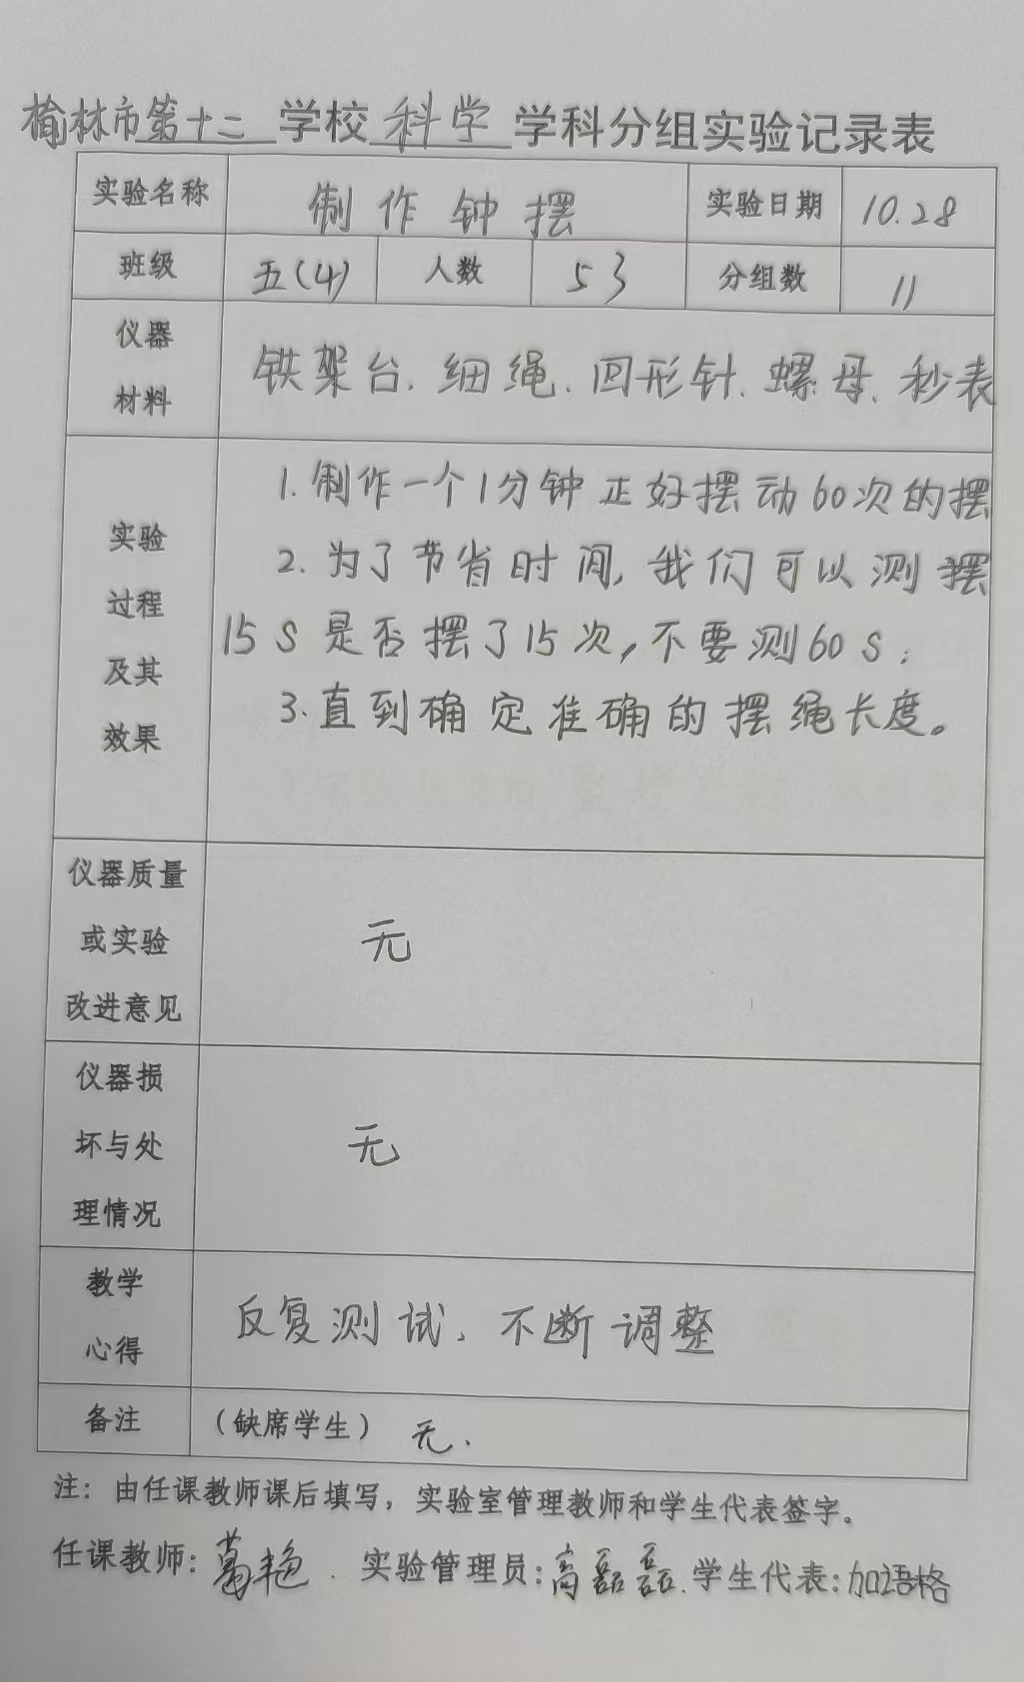 榆林市第十二 学校 科学 学科分组实验记录表
实验名称 制作钟摆 实验日期 10.28
班级 五(4) 人数 53 分组数 11
仪器
材料
铁架台、细绳、回形针、螺母、秒表
实验
过程
及其
效果
1.制作一个1分钟正好摆动60次的摆
2.为了节省时间,我们可以测摆
15S是否摆了15次,不要测60S;
3.直到确定准确的摆绳长度。
仪器质量
或实验
改进意见
无
仪器损
坏与处
理情况
无
教学
心得
反复测试、不断调整
备注 (缺席学生) 无.
注:由任课教师课后填写,实验室管理教师和学生代表签字。
任课教师: 艳 实验管理员:高磊磊 学生代表:加语格